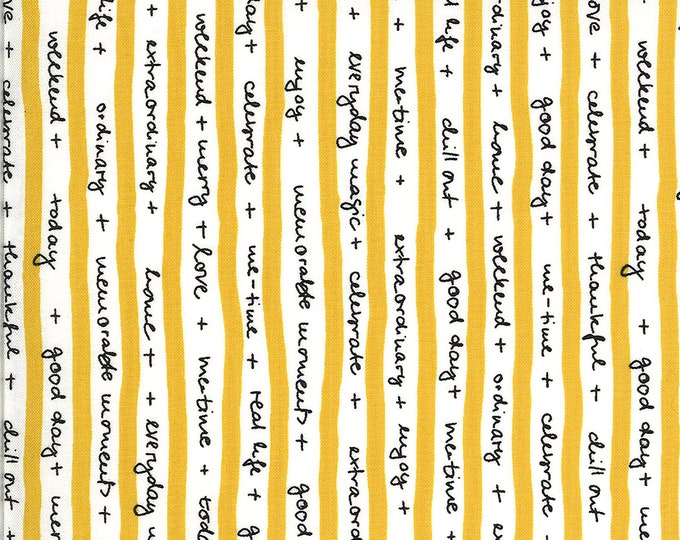 ve + celebrate + thankful + chill out +
weekend + today + good day + mer
life + ordinary + memorable moments +
+ extraordinary + home + + everyday
weekend + merry + love + me-time + toda
day + celebrate + me-time + real life + g
+ enjoy + memorable moments + good
+ everyday magic + celebrate + extraord
+ me-time + extraordinary + enjoy +
l life + chill out + good day + me-time +
ordinary + home + weekend + ordinary + ex
njoy + good day + me-time + celebrate
ove + celebrate + thankful + chill out
weekend + today + good day + me